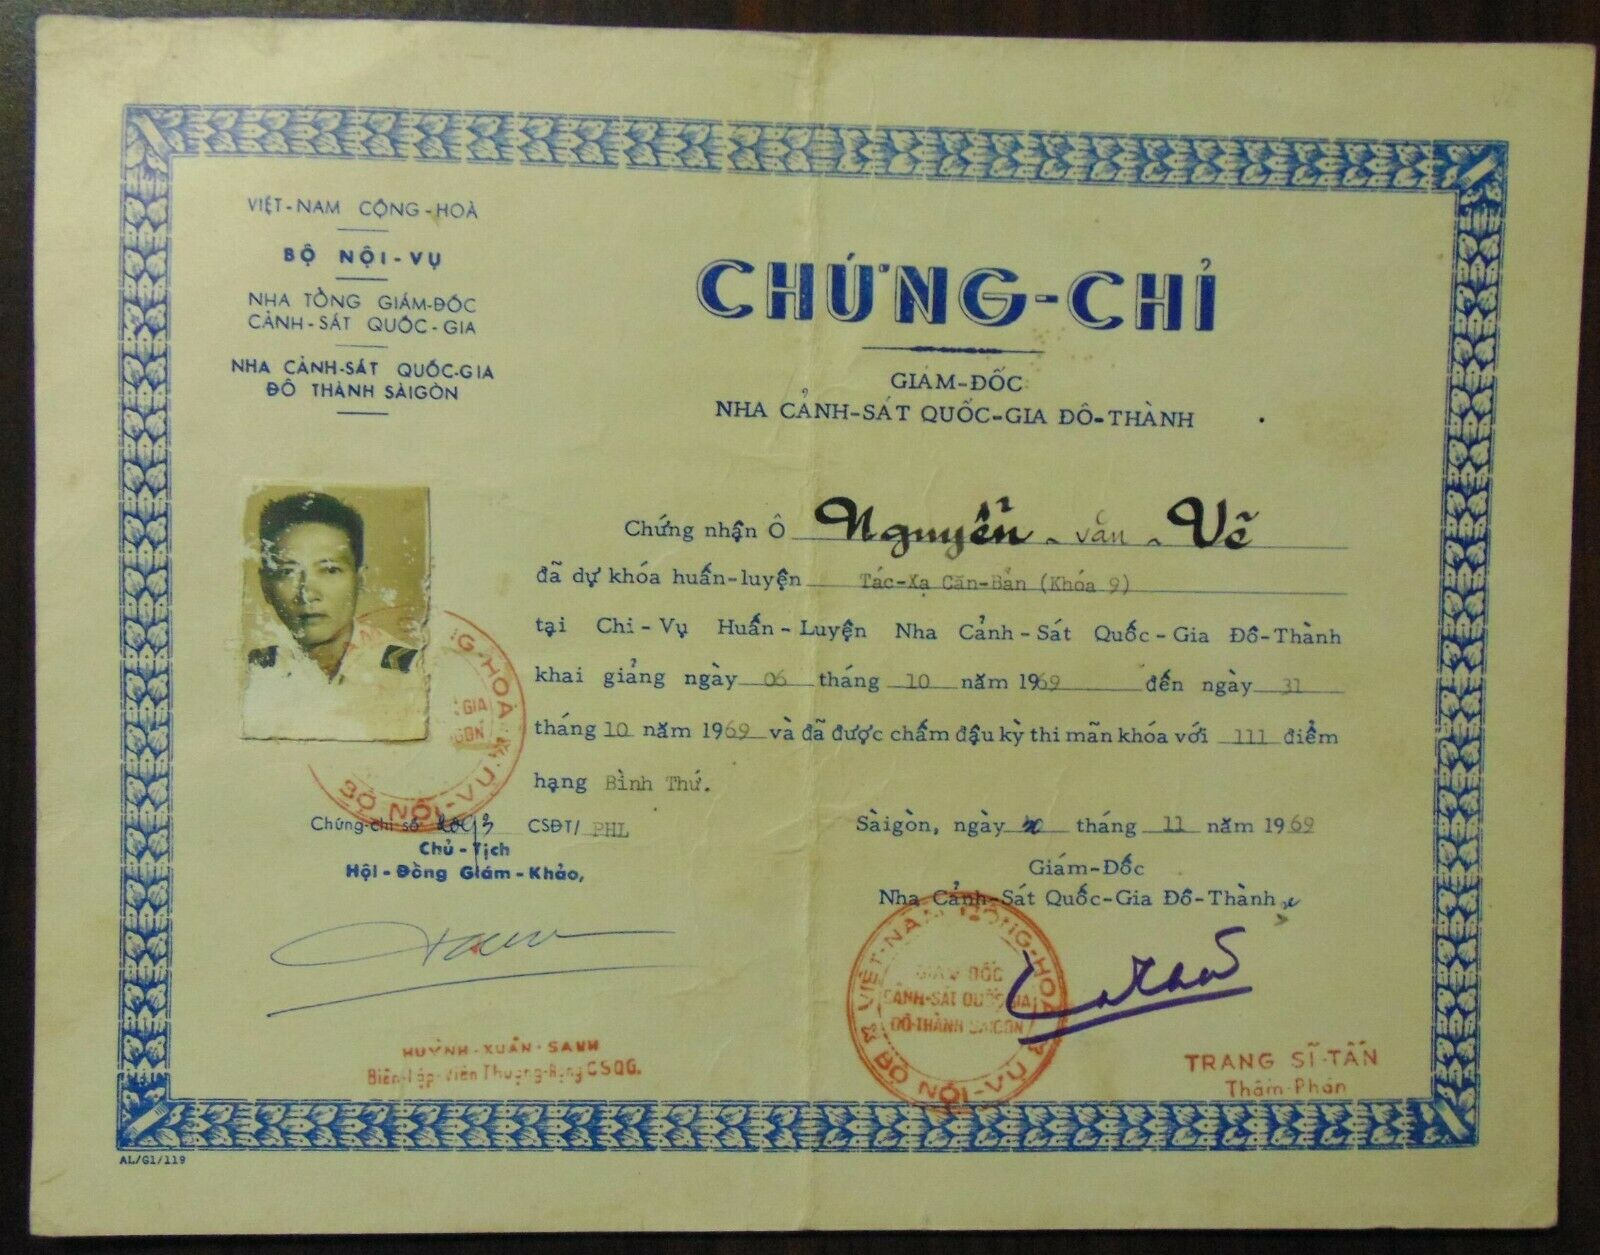 VIỆT-NAM CỘNG-HOÀ
BỘ NỘI-VỤ
NHA TỔNG GIÁM-ĐỐC
CẢNH-SÁT QUỐC-GIA
NHA CẢNH-SÁT QUỐC-GIA
ĐÔ THÀNH SÀIGÒN
CHỨNG-CHỈ
GIÁM-ĐỐC
NHA CẢNH-SÁT QUỐC-GIA ĐÔ-THÀNH
Chứng nhận Ô Nguyễn văn Vẽ
đã dự khóa huấn-luyện Tác-Xạ Căn-Bản (Khóa 9)
tại Chi-Vụ Huấn-Luyện Nha Cảnh-Sát Quốc-Gia Đô-Thành
khai giảng ngày 06 tháng 10 năm 1969 đến ngày 31
tháng 10 năm 1969 và đã được chấm đậu kỳ thi mãn khóa với 111 điểm
hạng Bình Thứ.
Chứng-chỉ số CSĐT/ PHL
Chủ-Tịch
Hội-Đồng Giám-Khảo,
Sàigòn, ngày tháng 11 năm 1969
Giám-Đốc
Nha Cảnh-Sát Quốc-Gia Đô-Thành
HUỲNH-XUÂN-SANH
Biên-Tập-Viên Thượng-Hạng CSQG.
VIỆT-NAM CỘNG-HOÀ
GIÁM ĐỐC
CẢNH-SÁT QUỐC GIA
ĐÔ-THÀNH SAIGON
BỘ NỘI-VỤ
TRANG SĨ-TẤN
Thẩm-Phán
G-HOÀ
GIA
GON
BỘ NỘI-VỤ
AL/G1/119